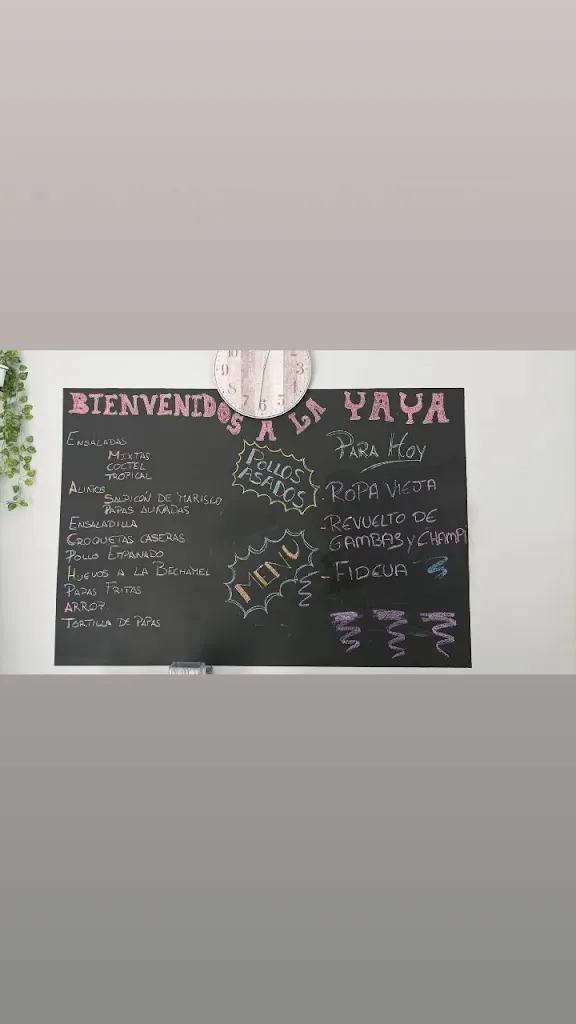 10
9
8
7
6
5
4
3
BIENVENIDOS A LA YAYA
ENSALADAS
MIXTAS
COCTEL
TROPICAL
ALIÑOS
SALPICÓN DE MARISCO
PAPAS ALIÑADAS
ENSALADILLA
CROQUETAS CASERAS
POLLO EMPANADO
HUEVOS A LA BECHAMEL
PAPAS FRITAS
ARROZ
TORTILLA DE PAPAS
POLLOS
ASADOS
MENU
PARA HOY
- ROPA VIEJA
- REVUELTO DE
GAMBAS Y CHAMPI
- FIDEUA